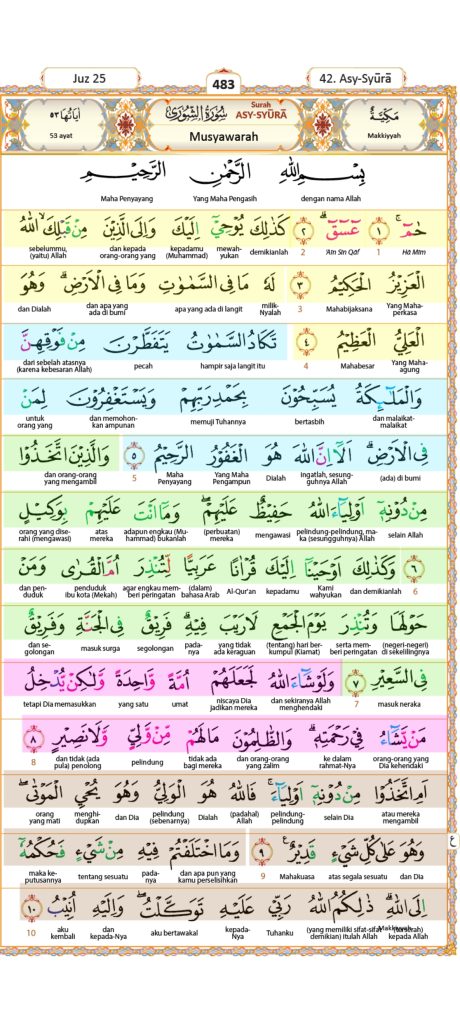 Juz 25
483
42. Asy-Syūrā
مَكِّيَّةٌ
Makkiyyah
سُوْرَةُ الشُّوْرٰى
Surah ASY-SYŪRĀ
Musyawarah
اٰيَاتُهَا ٥٣
53 ayat
بِسْمِ اللّٰهِ الرَّحْمٰنِ الرَّحِيْمِ
dengan nama Allah Yang Maha Pengasih Maha Penyayang
حٰمۤ ۚ ١ عۤسۤقۤ ۗ ٢ كَذٰلِكَ يُوْحِيْٓ اِلَيْكَ وَاِلَى الَّذِيْنَ مِنْ قَبْلِكَ ۙ اللّٰهُ
Ḥā Mīm 1 'Aīn Sīn Qāf 2 demikianlah mewahyukan kepadamu (Muhammad) dan kepada orang-orang yang sebelummu, (yaitu) Allah
الْعَزِيْزُ الْحَكِيْمُ ٣ لَهٗ مَا فِى السَّمٰوٰتِ وَمَا فِى الْاَرْضِ ۗ وَهُوَ
Yang Mahaperkasa Mahabijaksana 3 milik-Nyalah apa yang ada di langit dan apa yang ada di bumi dan Dialah
الْعَلِيُّ الْعَظِيْمُ ٤ تَكَادُ السَّمٰوٰتُ يَتَفَطَّرْنَ مِنْ فَوْقِهِنَّ
Yang Mahaagung Mahabesar 4 hampir saja langit itu pecah dari sebelah atasnya (karena kebesaran Allah)
وَالْمَلٰۤىِٕكَةُ يُسَبِّحُوْنَ بِحَمْدِ رَبِّهِمْ وَيَسْتَغْفِرُوْنَ لِمَنْ
dan malaikat-malaikat bertasbih memuji Tuhannya dan memohonkan ampunan untuk orang yang
فِى الْاَرْضِ ۗ اَلَآ اِنَّ اللّٰهَ هُوَ الْغَفُوْرُ الرَّحِيْمُ ٥ وَالَّذِيْنَ اتَّخَذُوْا
(ada) di bumi Ingatlah, sesungguhnya Allah Dialah Yang Maha Pengampun Maha Penyayang 5 dan orang-orang yang mengambil
مِنْ دُوْنِهٖٓ اَوْلِيَاۤءَ اللّٰهُ حَفِيْظٌ عَلَيْهِمْ ۖ وَمَآ اَنْتَ عَلَيْهِمْ بِوَكِيْلٍ
selain Allah pelindung-pelindung, maka (sesungguhnya) Allah mengawasi (perbuatan) mereka adapun engkau (Muhammad) bukanlah atas mereka orang yang diserahi (mengawasi)
٦ وَكَذٰلِكَ اَوْحَيْنَآ اِلَيْكَ قُرْاٰنًا عَرَبِيًّا لِّتُنْذِرَ اُمَّ الْقُرٰى وَمَنْ
6 dan demikianlah Kami wahyukan kepadamu Al-Qur'an (dalam) bahasa Arab agar engkau memberi peringatan penduduk ibu kota (Mekah) dan penduduk
حَوْلَهَا وَتُنْذِرَ يَوْمَ الْجَمْعِ لَا رَيْبَ فِيْهِ ۗ فَرِيْقٌ فِى الْجَنَّةِ وَفَرِيْقٌ
(negeri-negeri) di sekelilingnya serta memberi peringatan (tentang) hari berkumpul (Kiamat) yang tidak ada keraguan padanya segolongan masuk surga dan segolongan
فِى السَّعِيْرِ ٧ وَلَوْ شَاۤءَ اللّٰهُ لَجَعَلَهُمْ اُمَّةً وَّاحِدَةً وَّلٰكِنْ يُّدْخِلُ
masuk neraka 7 dan sekiranya Allah menghendaki niscaya Dia jadikan mereka umat yang satu tetapi Dia memasukkan
مَنْ يَّشَاۤءُ فِيْ رَحْمَتِهٖ ۗ وَالظّٰلِمُوْنَ مَا لَهُمْ مِّنْ وَّلِيٍّ وَّلَا نَصِيْرٍ ٨
orang-orang yang Dia kehendaki ke dalam rahmat-Nya dan orang-orang yang zalim tidak ada bagi mereka pelindung dan tidak (ada pula) penolong 8
اَمِ اتَّخَذُوْا مِنْ دُوْنِهٖٓ اَوْلِيَاۤءَ ۚ فَاللّٰهُ هُوَ الْوَلِيُّ وَهُوَ يُحْيِ الْمَوْتٰى ۖ
atau mereka mengambil selain Dia pelindung-pelindung (padahal) Allah Dialah pelindung (sebenarnya) dan Dia menghidupkan orang yang mati
وَهُوَ عَلٰى كُلِّ شَيْءٍ قَدِيْرٌ ࣖ ٩ وَمَا اخْتَلَفْتُمْ فِيْهِ مِنْ شَيْءٍ فَحُكْمُهٗٓ
ع
dan Dia atas segala sesuatu Mahakuasa 9 dan apa pun yang kamu perselisihkan padanya tentang sesuatu maka keputusannya
اِلَى اللّٰهِ ۗ ذٰلِكُمُ اللّٰهُ رَبِّيْ عَلَيْهِ تَوَكَّلْتُ ۖ وَاِلَيْهِ اُنِيْبُ ١٠
(terserah) kepada Allah Makkiyyah (yang memiliki sifat-sifat demikian) itulah Allah Tuhanku kepada-Nya aku bertawakal dan kepada-Nya aku kembali 10